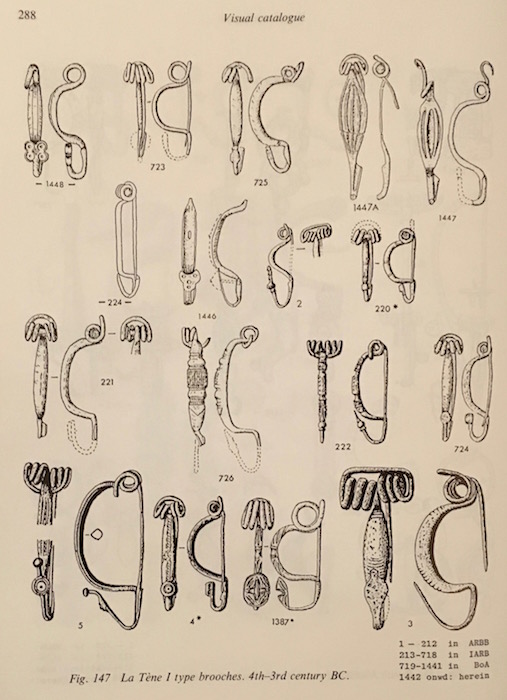 288
Visual catalogue
— 1448 —
723
725
1447A
1447
— 224 —
1446
2
220*
221
726
222
724
5
4*
1387*
3
1 – 212 in ARBB
213–718 in IARB
719–1441 in BoA
1442 onwd: herein
Fig. 147 La Tène I type brooches. 4th–3rd century BC.